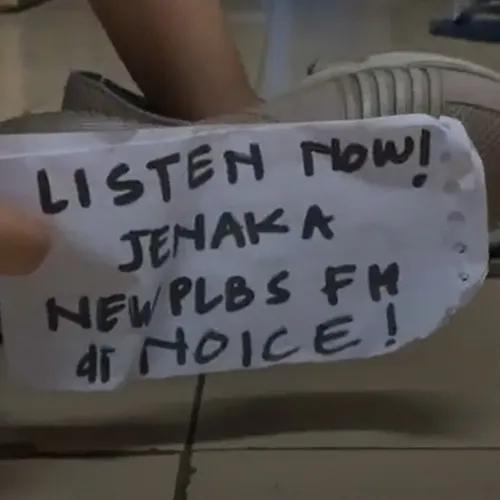 LISTEN NOW!
JENAKA
NEWPLBS FM
di NOICE!